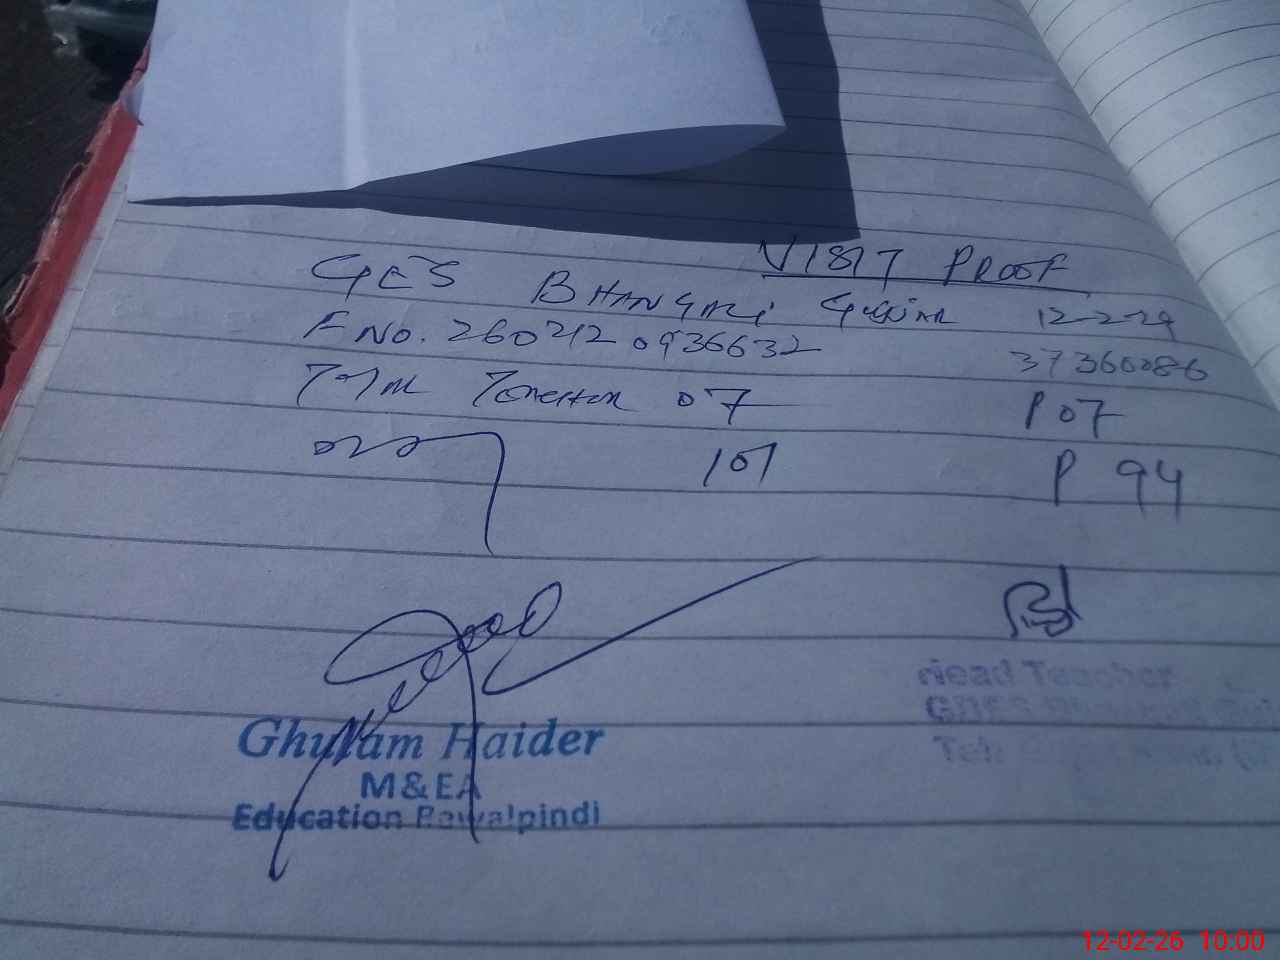 VISIT PROOF
GES BHANGRI Gujjar 12-2-26
F No. 260212 0936632 37360086
Total Teacher 07 P 07
101 P 94
Ghulam Haider
M&EA
Education Rawalpindi
Head Teacher
Teh
12-02-26 10.00